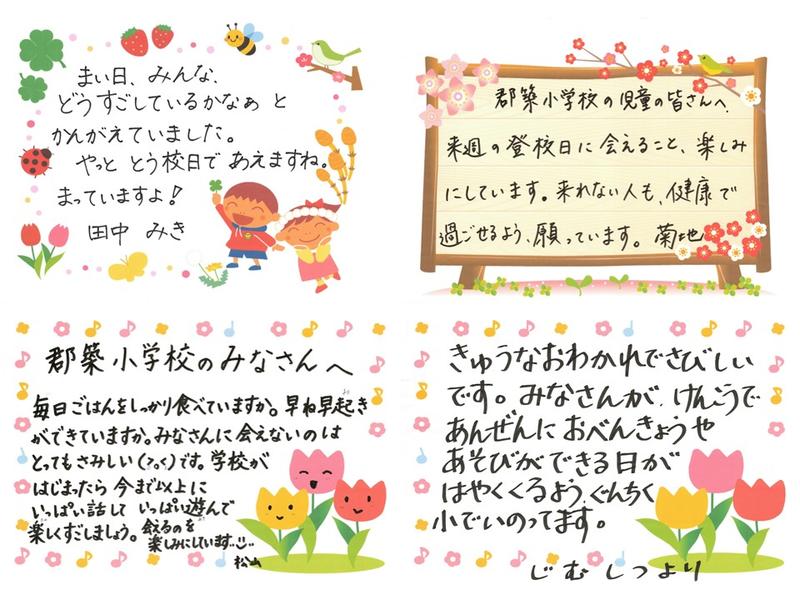 まい日、みんな、
どうすごしているかなぁ と
かんがえていました。
やっと とう校日で あえますね。
まっていますよ!
田中 みき
郡築小学校の児童の皆さんへ
来週の登校日に会えること、楽しみ
にしています。来れない人も、健康で
過ごせるよう、願っています。 菊地
郡築小学校のみなさんへ
毎日ごはんをしっかり食べていますか。早ね早起き
ができていますか。みなさんに会えないのは
とってもさみしいです。学校が
はじまったら 今まで以上に
いっぱい話して いっぱい遊んで
楽しくすごしましょう。会えるのを
楽しみにしています
松山
きゅうなおわかれでさびしい
です。みなさんが、けんこうで
あんぜんに おべんきょうや
あそびが できる日が
はやくくるよう、ぐんちく
小でいのってます。
じむしつより